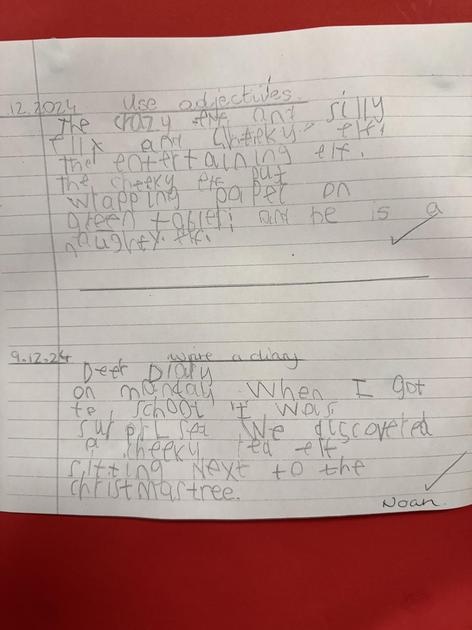 .12.2024 Use adjectives.
The crazy the ant silly
and cheeky elf.
the entertaining elf.
the cheeky elf put
wrapping paper on
green tabel; and he is a
naughty elf.
9.12.24 write a diary
Deer Diary
on monday when I got
to school I was
surprised We discovered
a cheeky red elf
sitting Next to the
christmastree.
Noah